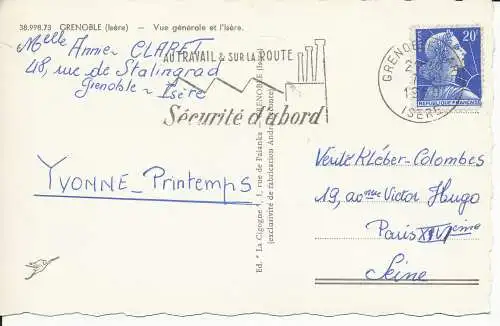 38.998.73 GRENOBLE (Isère) — Vue générale et l'Isère.
Melle Annie CLARET
48, rue de Stalingrad
Grenoble - Isère
AU TRAVAIL & SUR LA ROUTE
Sécurité d'abord
GRENOBLE
ISÈRE
20F
REPUBLIQUE FRANÇAISE
YVONNE-Printemps
Ed. "La Cigogne", rue de GRENOBLE (Isère)
(exclusivité de fabrication André
Kléber-Colombes
19, Victor Hugo
Paris XVIème
Seine